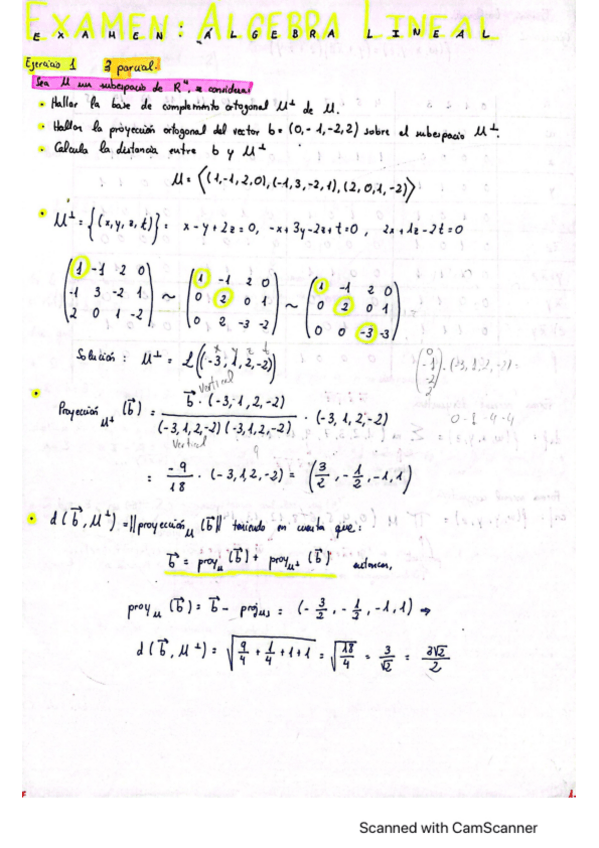 EXAMEN: ALGEBRA LINEAL
EXAMEN: ALGEBRA LINEAL
Ejercicio 1 3 parcial.
Sea M un subespacio de R⁴, se considera:
• Hallar la base de complemento ortogonal M⊥ de M.
• Hallar la proyección ortogonal del vector b = (0,-1,-2,2) sobre el subespacio M⊥.
• Calcula la distancia entre b y M⊥
M = ⟨(1,-1,2,0),(-1,3,-2,1),(2,0,1,-2)⟩
• M⊥ = {(x,y,z,t)} = x-y+2z=0, -x+3y-2z+t=0, 2x+1z-2t=0
(1 -1 2 0) (1 -1 2 0) (1 -1 2 0)
(-1 3 -2 1) ~ (0 2 0 1) ~ (0 2 0 1)
(2 0 1 -2) (0 2 -3 -2) (0 0 -3 -3)
x y z t
Solución: M⊥ = L((-3,1,2,-2))
(0 -1 -2 2)·(-3,1,2,-2)=
vertical
• Proyección M⊥ (b⃗) = b⃗·(-3,1,2,-2) / (-3,1,2,-2)(-3,1,2,-2) · (-3,1,2,-2)
0-1-4-4
vertical
9
= -9/18 · (-3,1,2,-2) = (3/2, -1/2, -1, 1)
• d(b⃗, M⊥) = ||proyección M (b⃗)|| teniendo en cuenta que:
b⃗ = proy M (b⃗) + proy M⊥ (b⃗) entonces,
proy M (b⃗) = b⃗ - = (-3/2, -1/2, -1, 1) →
d(b⃗, M⊥) = √(9/4 + 1/4 + 1 + 1) = √(18/4) = 3/√2 = 3√2/2
Scanned with CamScanner